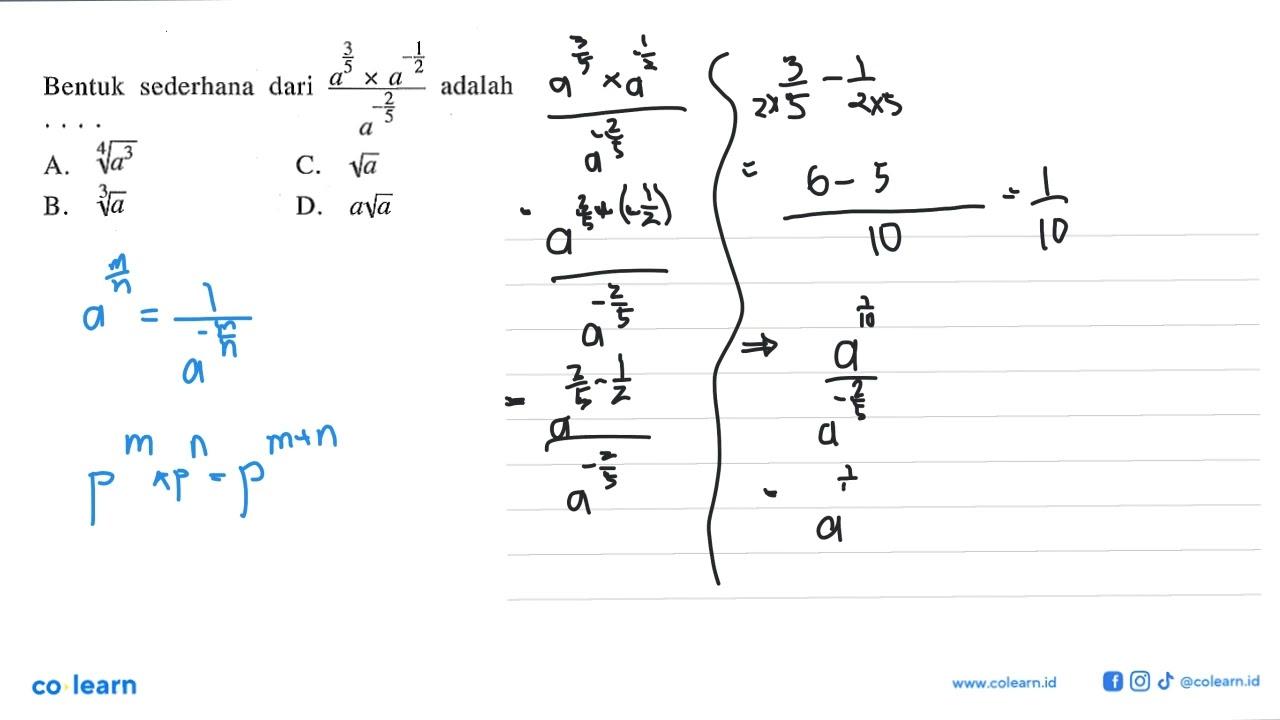 Bentuk sederhana dari \frac{a^{\frac{3}{5}} × a^{-\frac{1}{2}}}{a^{-\frac{2}{5}}} adalah
. . . .
A. \sqrt[4]{a^3}
C. \sqrt{a}
B. \sqrt[3]{a}
D. a\sqrt{a}
a^{\frac{m}{n}} = \frac{1}{a^{-\frac{m}{n}}}
p^m × p^n = p^{m+n}
\frac{a^{\frac{3}{5}} × a^{-\frac{1}{2}}}{a^{-\frac{2}{5}}}
= \frac{a^{\frac{3}{5} + (-\frac{1}{2})}}{a^{-\frac{2}{5}}}
= \frac{a^{\frac{3}{5} - \frac{1}{2}}}{a^{-\frac{2}{5}}}
\frac{3}{2×5} - \frac{1}{2×5}
= \frac{6 - 5}{10} = \frac{1}{10}
⇒ \frac{a^{\frac{1}{10}}}{a^{-\frac{2}{5}}}
= a^{\frac{1}{1}}
co learn
www.colearn.id
@colearn.id